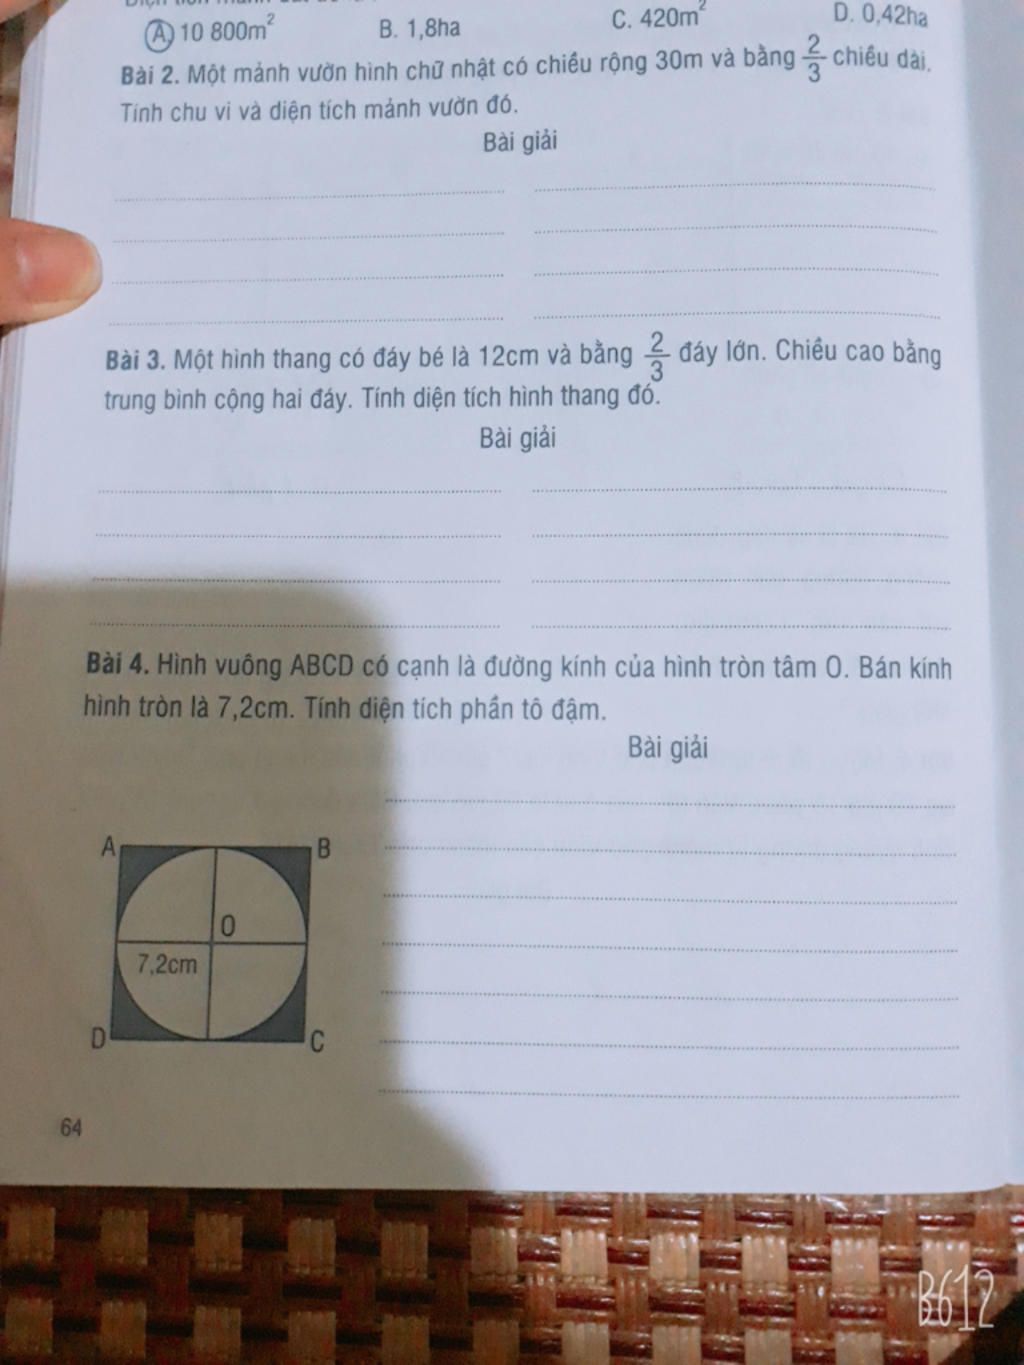 A. 10 800m² B. 1,8ha C. 420m² D. 0,42ha
Bài 2. Một mảnh vườn hình chữ nhật có chiều rộng 30m và bằng 2/3 chiều dài.
Tính chu vi và diện tích mảnh vườn đó.
Bài giải
Bài 3. Một hình thang có đáy bé là 12cm và bằng 2/3 đáy lớn. Chiều cao bằng
trung bình cộng hai đáy. Tính diện tích hình thang đó.
Bài giải
Bài 4. Hình vuông ABCD có cạnh là đường kính của hình tròn tâm O. Bán kính
hình tròn là 7,2cm. Tính diện tích phần tô đậm.
Bài giải
A B
O
7,2cm
D C
64
B612